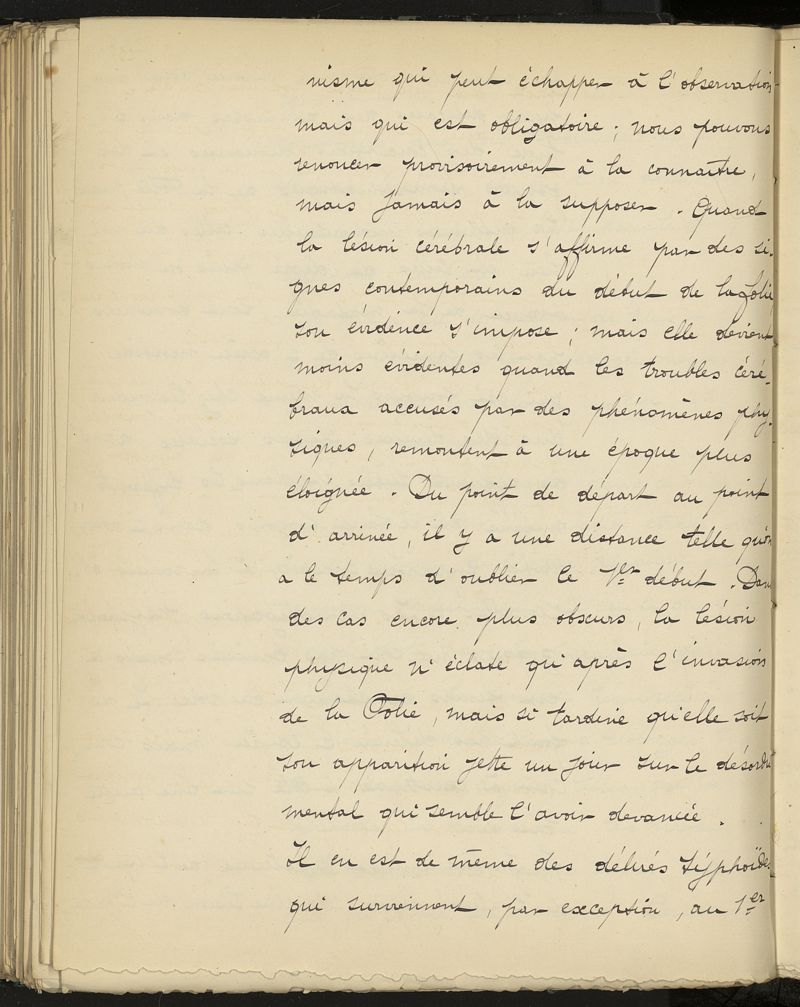 nisme qui peut échapper à l'observation
mais qui est obligatoire ; nous pouvons
renoncer provisoirement à la connaître,
mais jamais à la supposer. Quand
la lésion cérébrale s'affirme par des si-
gnes contemporains du début de la folie
son évidence s'impose ; mais elle devient
moins évidentes quand les troubles céré-
braux accusés par des phénomènes phy-
siques, remontent à une époque plus
éloignée. Du point de départ au point
d'arrivée, il y a une distance telle qu'on
a le temps d'oublier le 1er début. Dans
des cas encore plus obscurs, la lésion
physique n'éclate qu'après l'invasion
de la Folie, mais si tardive qu'elle soit
son apparition jette un jour sur le désordre
mental qui semble l'avoir devancée.
Il en est de même des délires typhoïdes
qui surviennent, par exception, au 1er